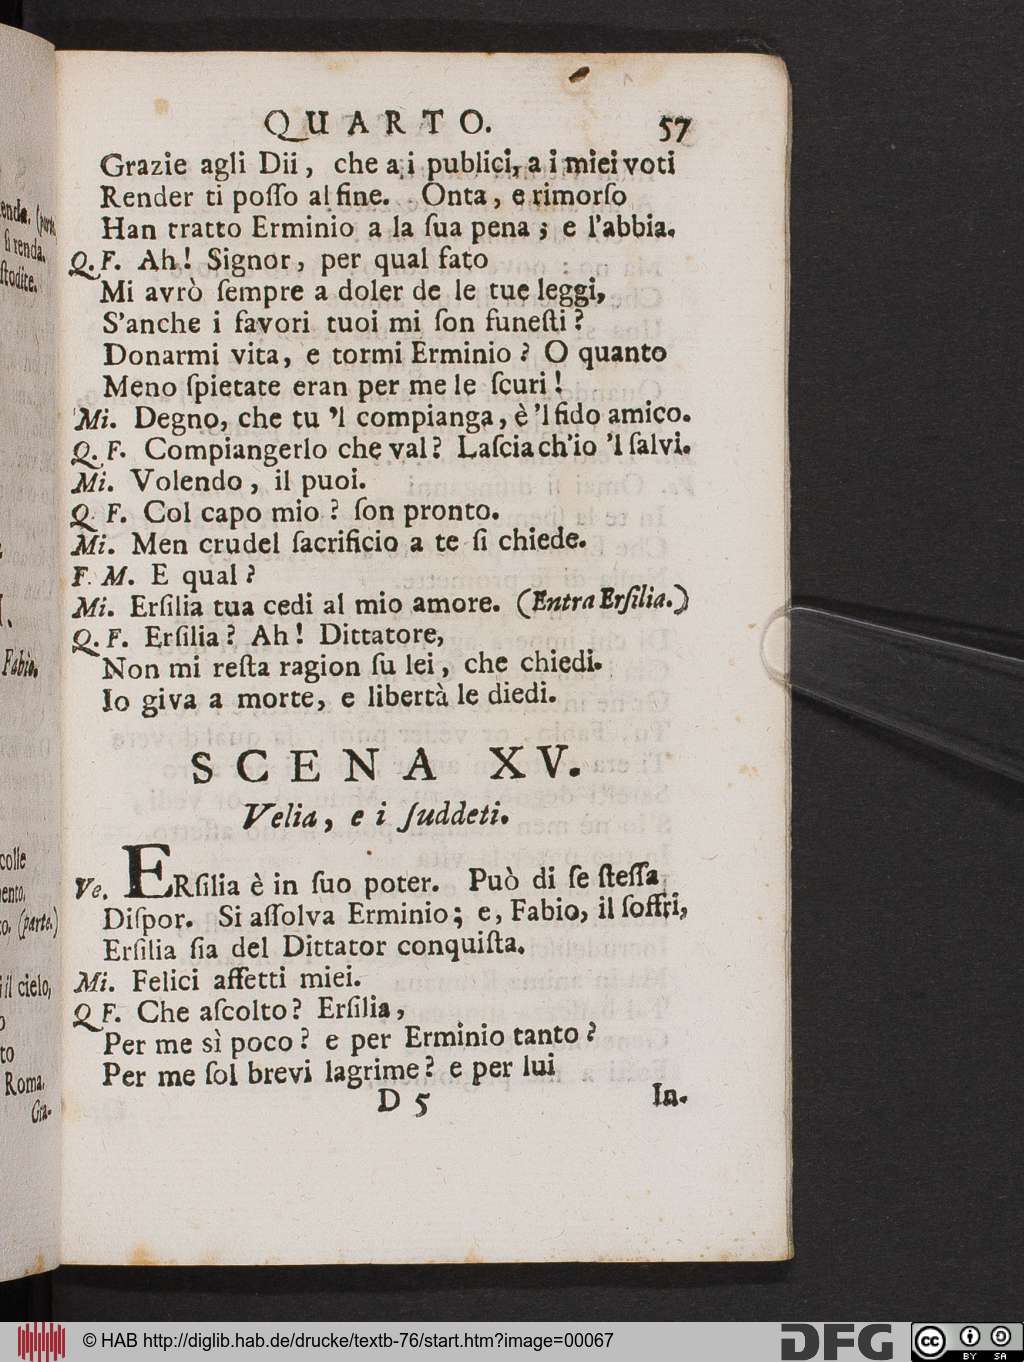 QUARTO. 57
Grazie agli Dii, che a i publici, a i miei voti
Render ti poſſo al fine. Onta, e rimorſo
Han tratto Erminio a la ſua pena; e l'abbia.
Q. F. Ah! Signor, per qual fato
Mi avrò ſempre a doler de le tue leggi,
S'anche i favori tuoi mi ſon funeſti?
Donarmi vita, e tormi Erminio? O quanto
Meno ſpietate eran per me le ſcuri!
Mi. Degno, che tu 'l compianga, è 'l fido amico.
Q. F. Compiangerlo che val? Laſcia ch'io 'l ſalvi.
Mi. Volendo, il puoi.
Q. F. Col capo mio? ſon pronto.
Mi. Men crudel ſacrificio a te ſi chiede.
F. M. E qual?
Mi. Erſilia tua cedi al mio amore. (Entra Erſilia.)
Q. F. Erſilia? Ah! Dittatore,
Non mi reſta ragion ſu lei, che chiedi.
Io giva a morte, e libertà le diedi.
SCENA XV.
Velia, e i ſuddeti.
Ve. ERſilia è in ſuo poter. Può di ſe ſteſſa
Diſpor. Si aſſolva Erminio; e, Fabio, il ſoffri,
Erſilia ſia del Dittator conquiſta.
Mi. Felici affetti miei.
Q F. Che aſcolto? Erſilia,
Per me sì poco? e per Erminio tanto?
Per me ſol brevi lagrime? e per lui
D 5 In-
enda. (parte.
ſi renda.
ſtodite.
Fabio.
colle
ento,
o. (parte.)
i il cielo,
o
to
Roma.
Gra-
© HAB http://diglib.hab.de/drucke/textb-76/start.htm?image=00067
DFG
cc BY SA